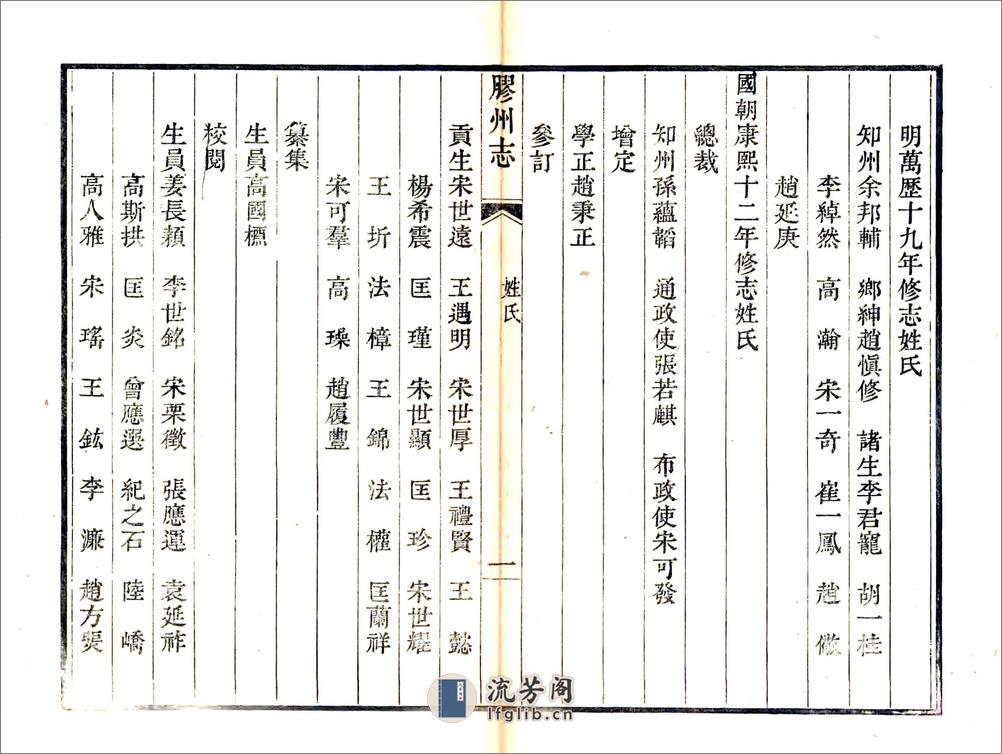 明萬歷十九年修志姓氏
知州余邦輔　鄉紳趙愼修　諸生李君寵　胡一桂
李綽然　高　瀚　宋一奇　崔一鳳　趙　儆
趙延庚
國朝康熙十二年修志姓氏
總裁
知州孫蘊韜　通政使張若麒　布政使宋可發
增定
學正趙秉正
參訂
膠州志
姓氏
一
貢生宋世遠　王遇明　宋世厚　王禮賢　王　懿
楊希震　匡　瑾　宋世顯　匡　珍　宋世耀
王　圻　法　樟　王　錦　法　權　匡蘭祥
宋可羣　高　璪　趙履豐
纂集
生員高國標
校閱
生員姜長頴　李世銘　宋栗徵　張應運　袁延祚
高斯拱　匡　炎　曾應選　紀之石　陸　嶠
高人雅　宋　瑤　王　鉉　李　濂　趙方
流芳阁
lfglib.cn